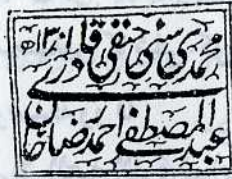 محمدی سنی حنفی قادری ۱۳۰۱ھ
عبد المصطفیٰ احمد رضا خان